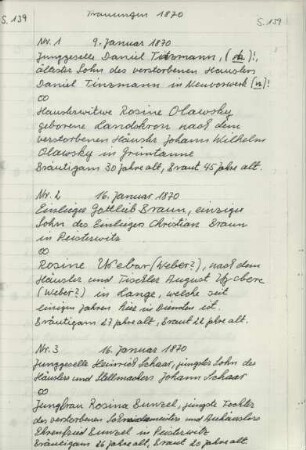 Trauungen 1870
S. 139
S. 139
Nr. 1 9. Januar 1870
Junggeselle Daniel Tinzmann, (m)!,
ältester Sohn des verstorbenen Häuslers
Daniel Tinzmann in Neuvorwerk (n)!
∞
Häuslerwitwe Rosine Olawsky
geborene Landskron nach dem
verstorbenen Häusler Johann Wilhelm
Olawsky in Grüntanne
Bräutigam 30 Jahre alt, Braut 45 Jahre alt.
Nr. 2 16. Januar 1870
Einlieger Gottlieb Braun, einziger
Sohn des Einlieger Christian Braun
in Peisterwitz
∞
Rosine Webar (Weber?), nach dem
Häusler und Tischler August
(Weber?) in Lange, welche seit
einigen Jahren hier in Diensten ist.
Bräutigam 27 Jahre alt, Braut 22 Jahre alt.
Nr. 3 16. Januar 1870
Junggeselle Heinrich Schaar, jüngster Sohn des
Häusler und Stellmachers Johann Schaar
∞
Jungfrau Rosina Dunzel, jüngste Tochter
des verstorbenen Schneidermeisters und Auenhäuslers
Ehrenfried Dunzel in Peisterwitz
Bräutigam 26 Jahre alt, Braut 20 Jahre alt